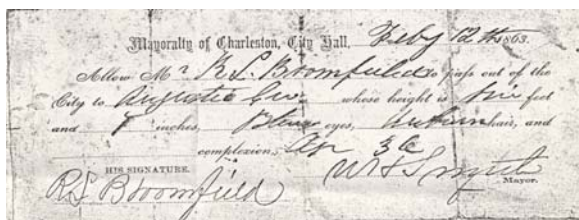 Mayoralty of Charleston, City Hall, Feby 12th 1863.
Allow Mr R. L. Broomfield to pass out of the
City to Augusta Geo whose height is five feet
and 9 inches, Blue eyes, auburn hair, and
complexion,
HIS SIGNATURE.
R L Broomfield
Mayor.